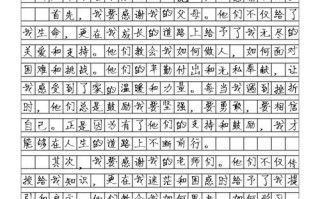 首先，我要感谢我的父母。他们不仅给了
我生命，更在我成长的道路上给予了无尽的
关爱和支持。他们教会我如何做人，如何面对
困难和挑战。他们的辛勤付出和无私奉献，让
我感受到了家的温暖和力量。每当我遇到挫折
时，他们总是鼓励我要坚强，要勇敢，要相信
自己。正是因为有了他们的支持和鼓励，我才
能够在人生的道路上不断前行。
其次，我要感谢我的老师们。他们不仅传
授给我知识，更在我迷茫和困惑时给予了我指